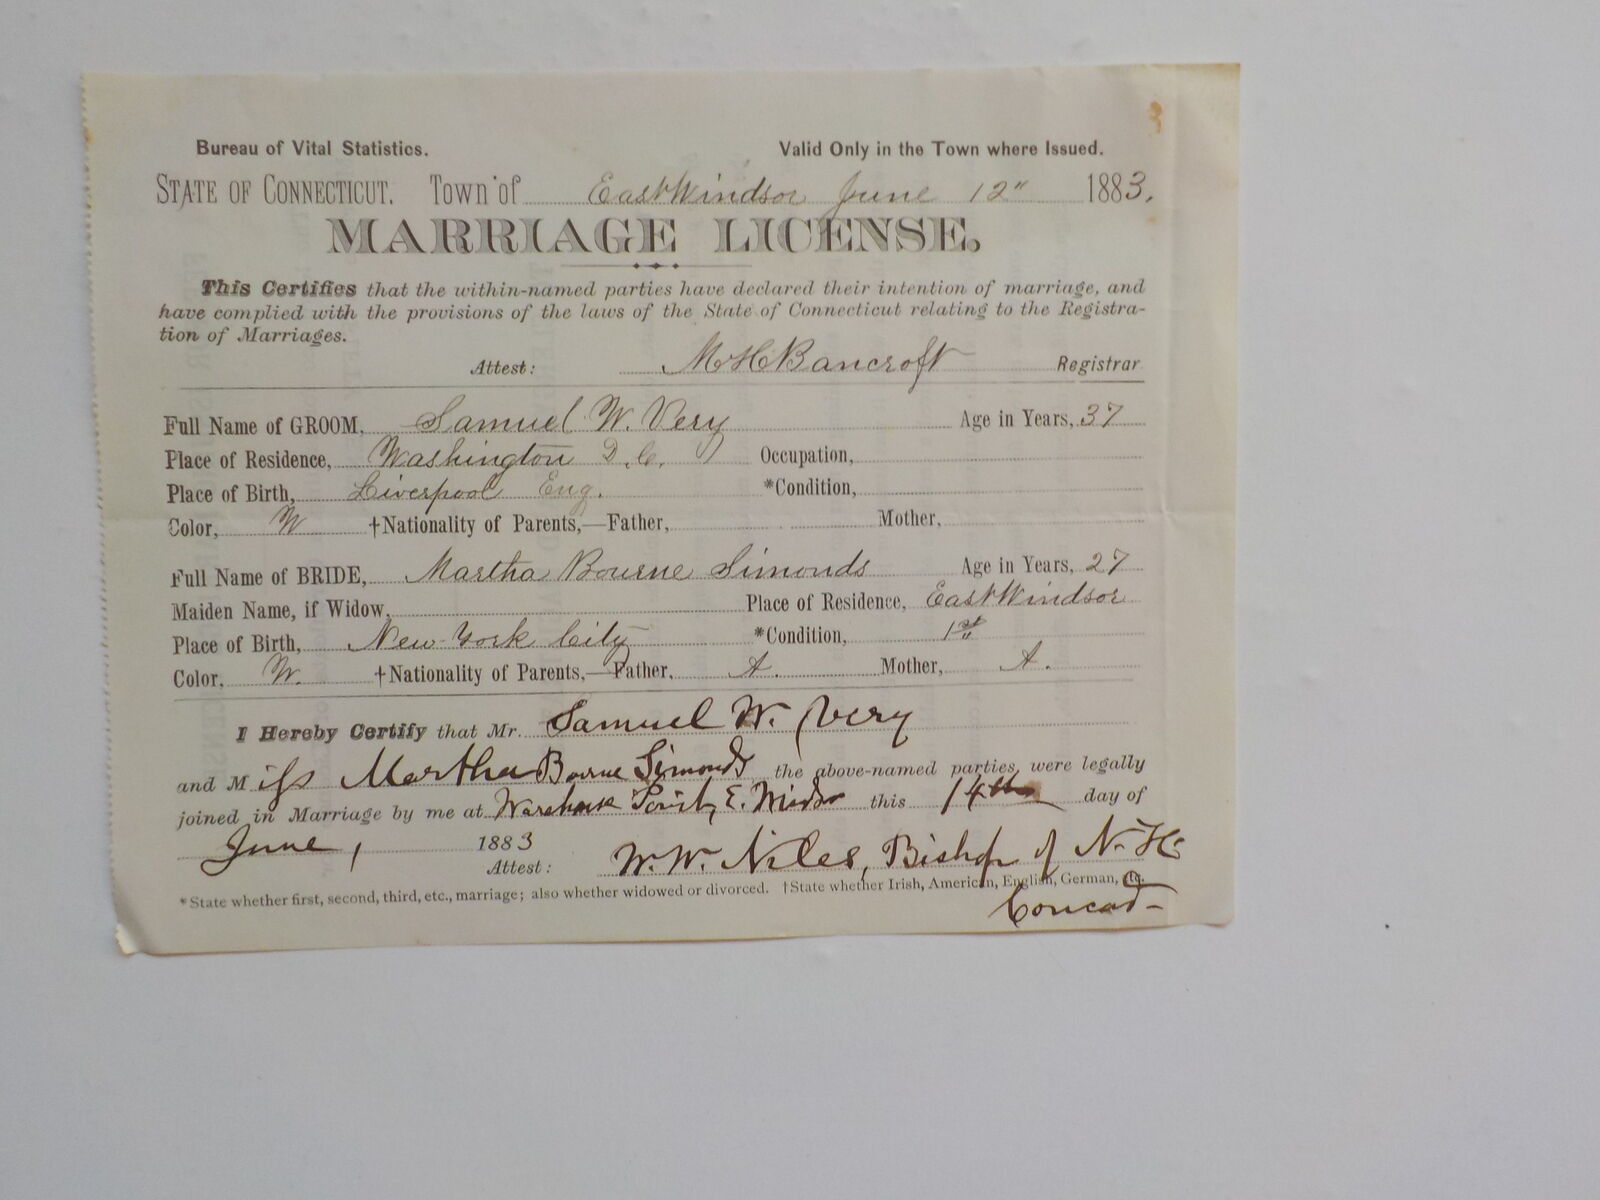 Bureau of Vital Statistics. Valid Only in the Town where Issued.
STATE OF CONNECTICUT. Town of East Windsor June 12" 1883.
MARRIAGE LICENSE.
This Certifies that the within-named parties have declared their intention of marriage, and
have complied with the provisions of the laws of the State of Connecticut relating to the Registra-
tion of Marriages.
Attest: M H Bancroft Registrar
Full Name of GROOM, Samuel W. Very Age in Years, 37
Place of Residence, Washington D.C. Occupation,
Place of Birth, Liverpool Eng. *Condition,
Color, W †Nationality of Parents,—Father, Mother,
Full Name of BRIDE, Martha Bourne Simonds Age in Years, 27
Maiden Name, if Widow, Place of Residence, East Windsor
Place of Birth, New York City *Condition, 1st
Color, W. †Nationality of Parents,—Father, A. Mother, A.
I Hereby Certify that Mr. Samuel W. Very
and Miss Martha Bourne Simonds the above-named parties, were legally
joined in Marriage by me at Warehouse Point, E. Windsor this 14th day of
June, 1883
Attest: W. W. Niles, Bishop of N. H.
*State whether first, second, third, etc., marriage; also whether widowed or divorced. †State whether Irish, American, English, German, etc.
Concord-